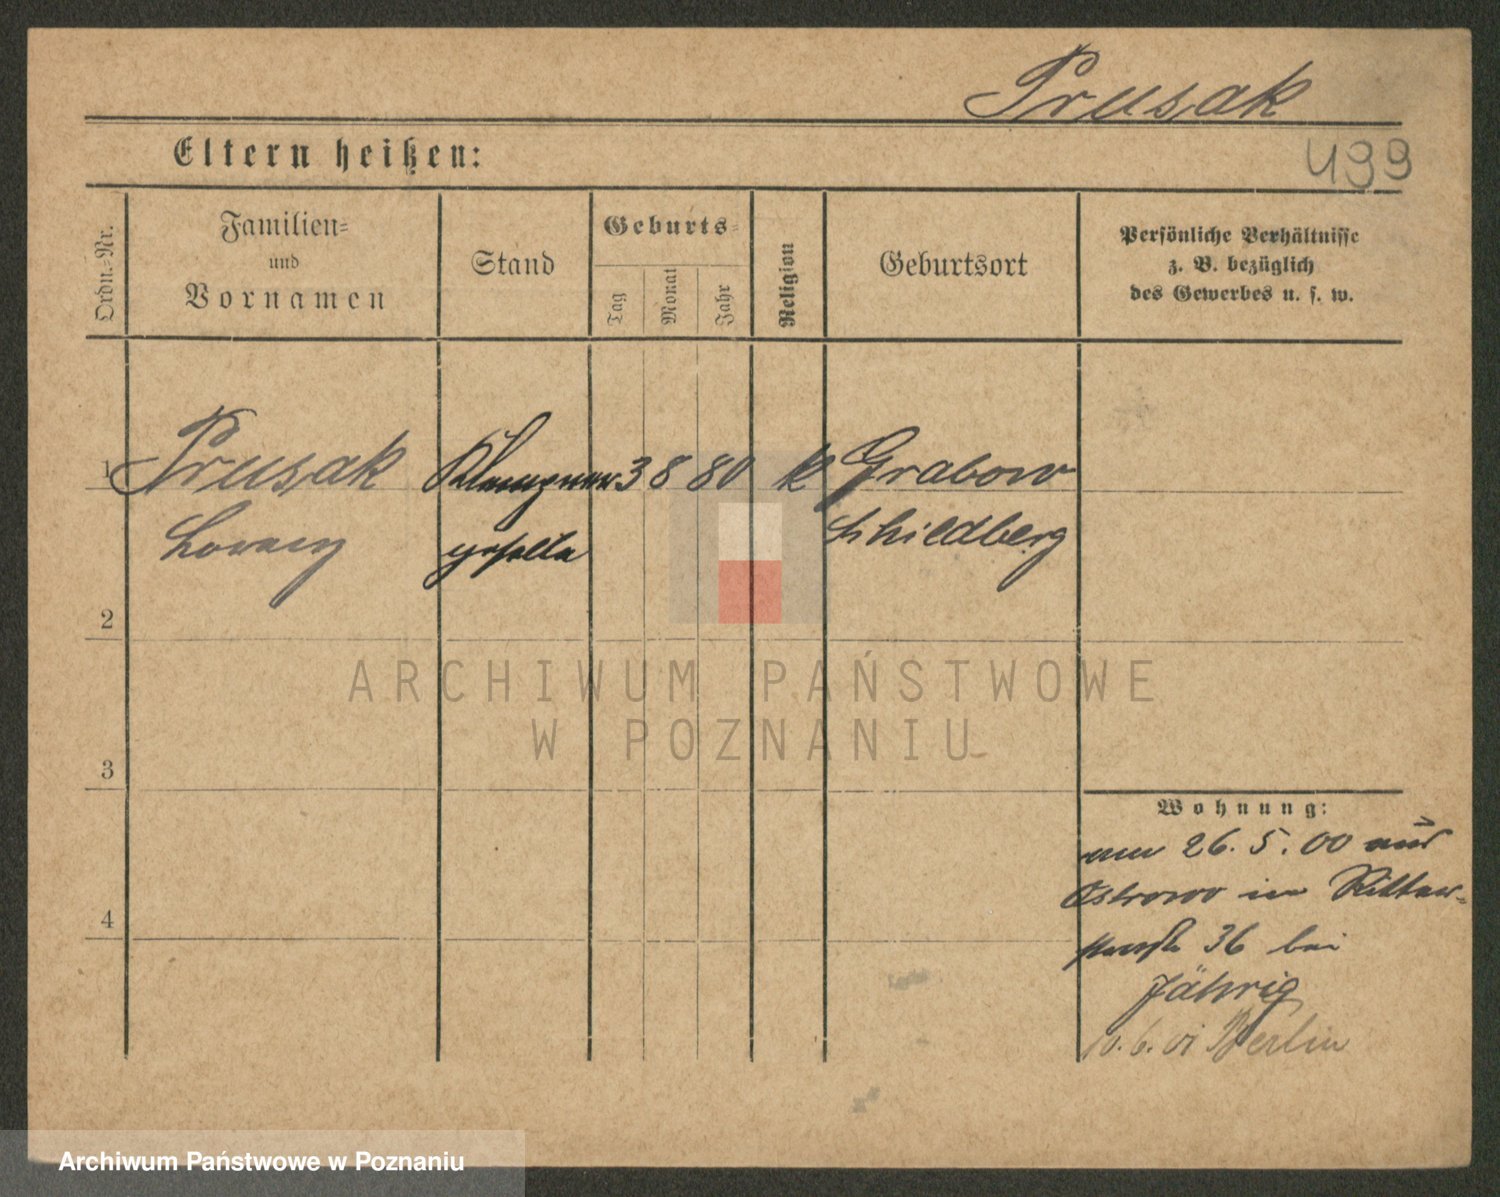 Prusak
499
Eltern heißen:
Ordn.-Nr.
Familien-
und
Vornamen
Stand
Geburts-
Tag
Monat
Jahr
Religion
Geburtsort
Persönliche Verhältnisse
z. B. bezüglich
des Gewerbes u. s. w.
1 Prusak Klempner 3 8 80 k Grabow
geselle Schildberg
2
ARCHIWUM PAŃSTWOWE
W POZNANIU
3
Wohnung:
26. 5. 00 aus
Ostrowo in Ritter-
4
straße 36 bei
Jährig
10. 6. 01 Berlin
Archiwum Państwowe w Poznaniu